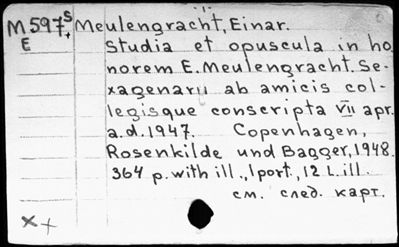 M597 St Meulengracht, Einar.
E Studia et opuscula in ho
norem E. Meulengracht. Se-
xagenarii ab amicis col-
legisque conscripta VII apr.
a.d. 1947. Copenhagen,
Rosenkilde und Bagger, 1948.
364 p. with ill., 1 port., 12 L. ill.
см. след. карт.
x+